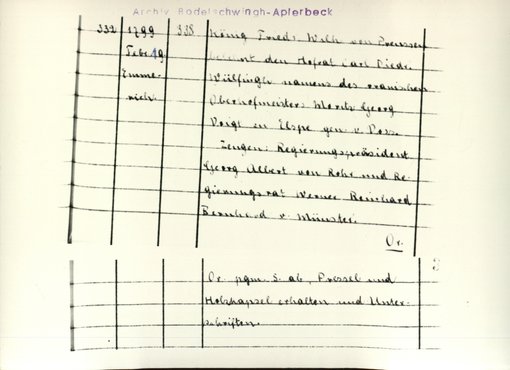 Archiv Bodelschwingh-Aplerbeck
332 1799 338. König Friedr. Wilh. von Preussen
Febr. 19. belehnt den Hofrat Carl Diedr.
Emme- Wülfingh namens des oranischen
rich. Oberhofmeisters Moritz Georg
Voigt zu Elspe gen. v.
Zeugen: Regierungspräsident
Georg Albert von Rohr und Re-
gierungsrat Werner Reinhard
Bernhard v. Münster.
Or.
Or. pgm. S. ab, Pressel und
Holzkapsel erhalten und Unter-
schriften.